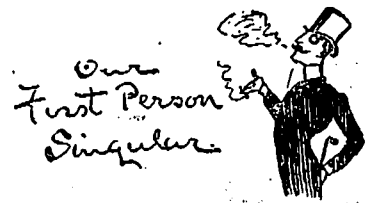 Our
First Person
Singular.